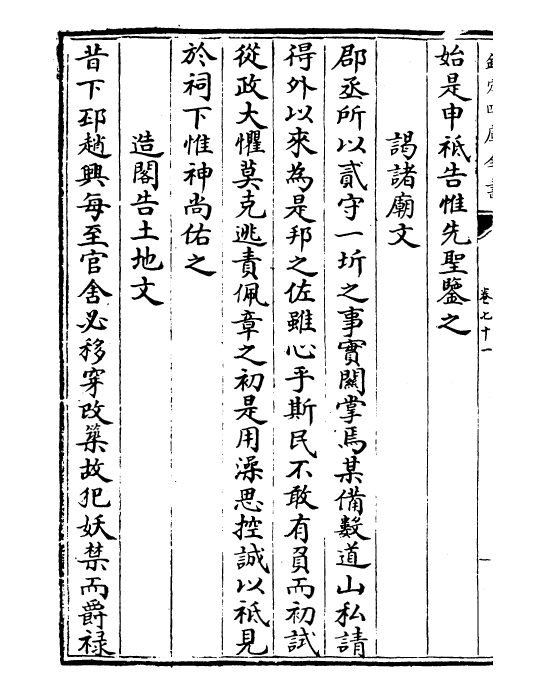 欽定四庫全書
卷七十一
始是申祗告惟先聖鑒之
謁諸廟文
郡丞所以貳守一圻之事實關掌焉某備數道山私請
得外以來為是邦之佐雖心乎斯民不敢有負而初試
從政大懼莫克逃責佩章之初是用澡思控誠以祗見
於祠下惟神尚佑之
造閣告土地文
昔下邳趙興每至官舍必移穿改築故犯妖禁而爵祿